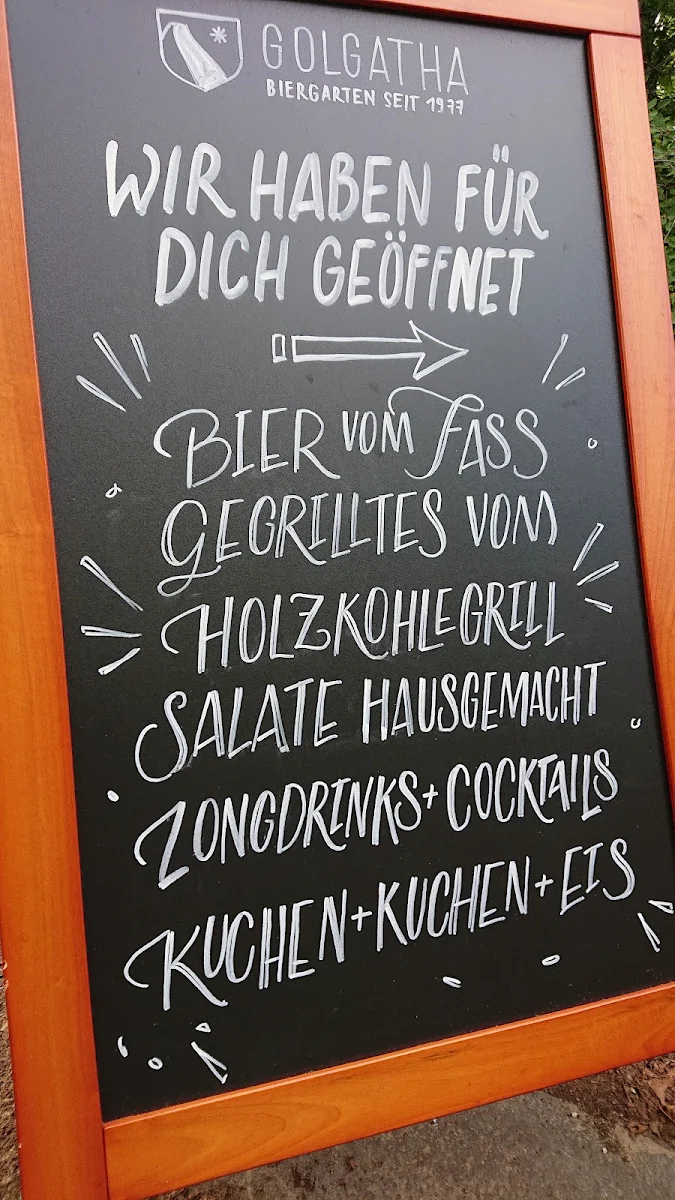 GOLGATHA
BIERGARTEN SEIT 1977
WIR HABEN FÜR
DICH GEÖFFNET
BIER VOM FASS
GEGRILLTES VOM
HOLZKOHLEGRILL
SALATE HAUSGEMACHT
ZONGDRINKS + COCKTAILS
KUCHEN + KUCHEN + EIS